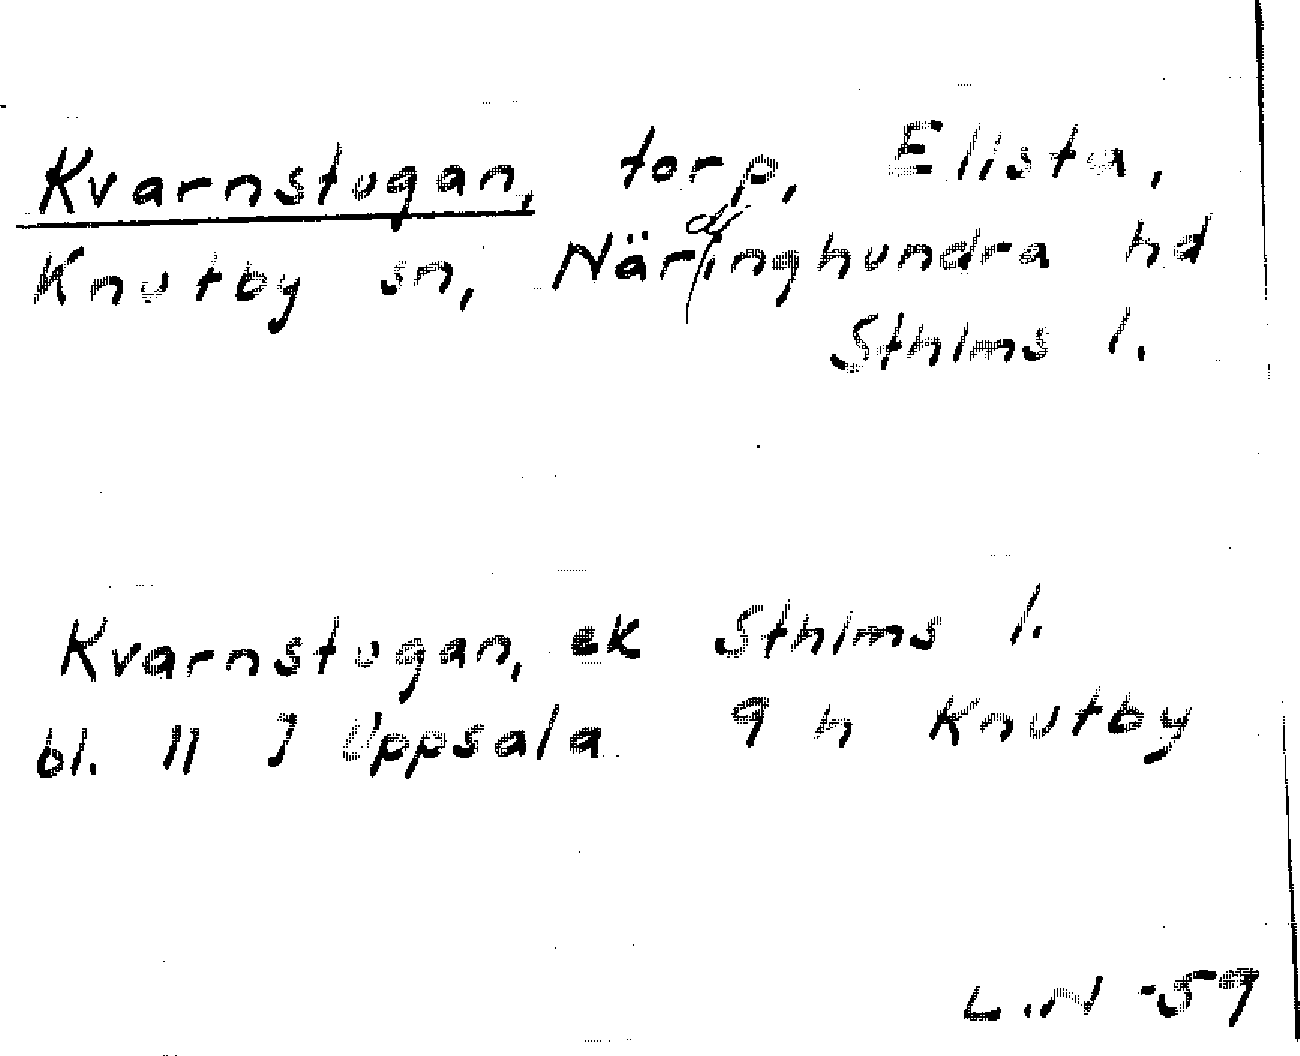 Kvarnstugan, torp, Ellsta,
Knutby sn, Närdinghundra hd
Sthlms l.
Kvarnstugan, ek Sthlms l.
bl. 11 J Uppsala 9 h Knutby
L.N -59